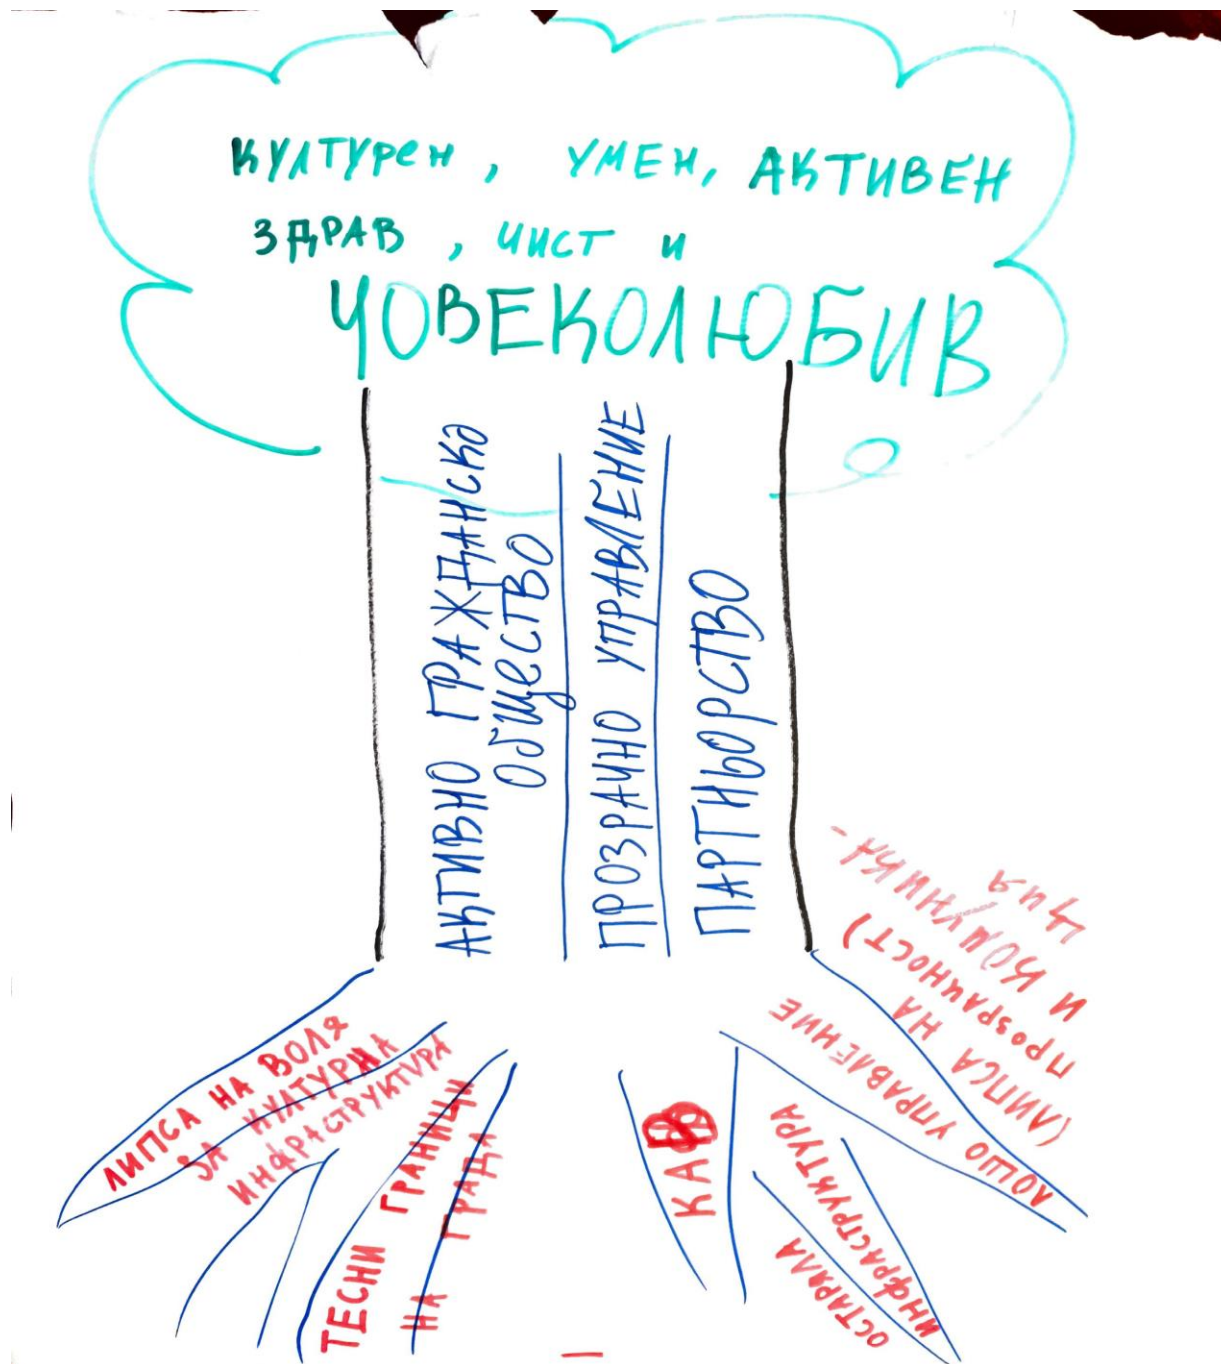 КУЛТУРЕН, УМЕН, АКТИВЕН
ЗДРАВ, ЧИСТ И
ЧОВЕКОЛЮБИВ
АКТИВНО ГРАЖДАНСКО
ОБЩЕСТВО
ПРОЗРАЧНО УПРАВЛЕНИЕ
ПАРТНЬОРСТВО
ЛИПСА НА ВОЛЯ
ЗА КУЛТУРНА
ИНФРАСТРУКТУРА
ТЕСНИ ГРАНИЦИ
НА ГРАДА
ОСТАРЯЛА
ИНФРАСТРУКТУРА
ЛОШО УПРАВЛЕНИЕ
(ЛИПСА НА
ПРОЗРАЧНОСТ)
И КОМУНИКА-
ЦИЯ